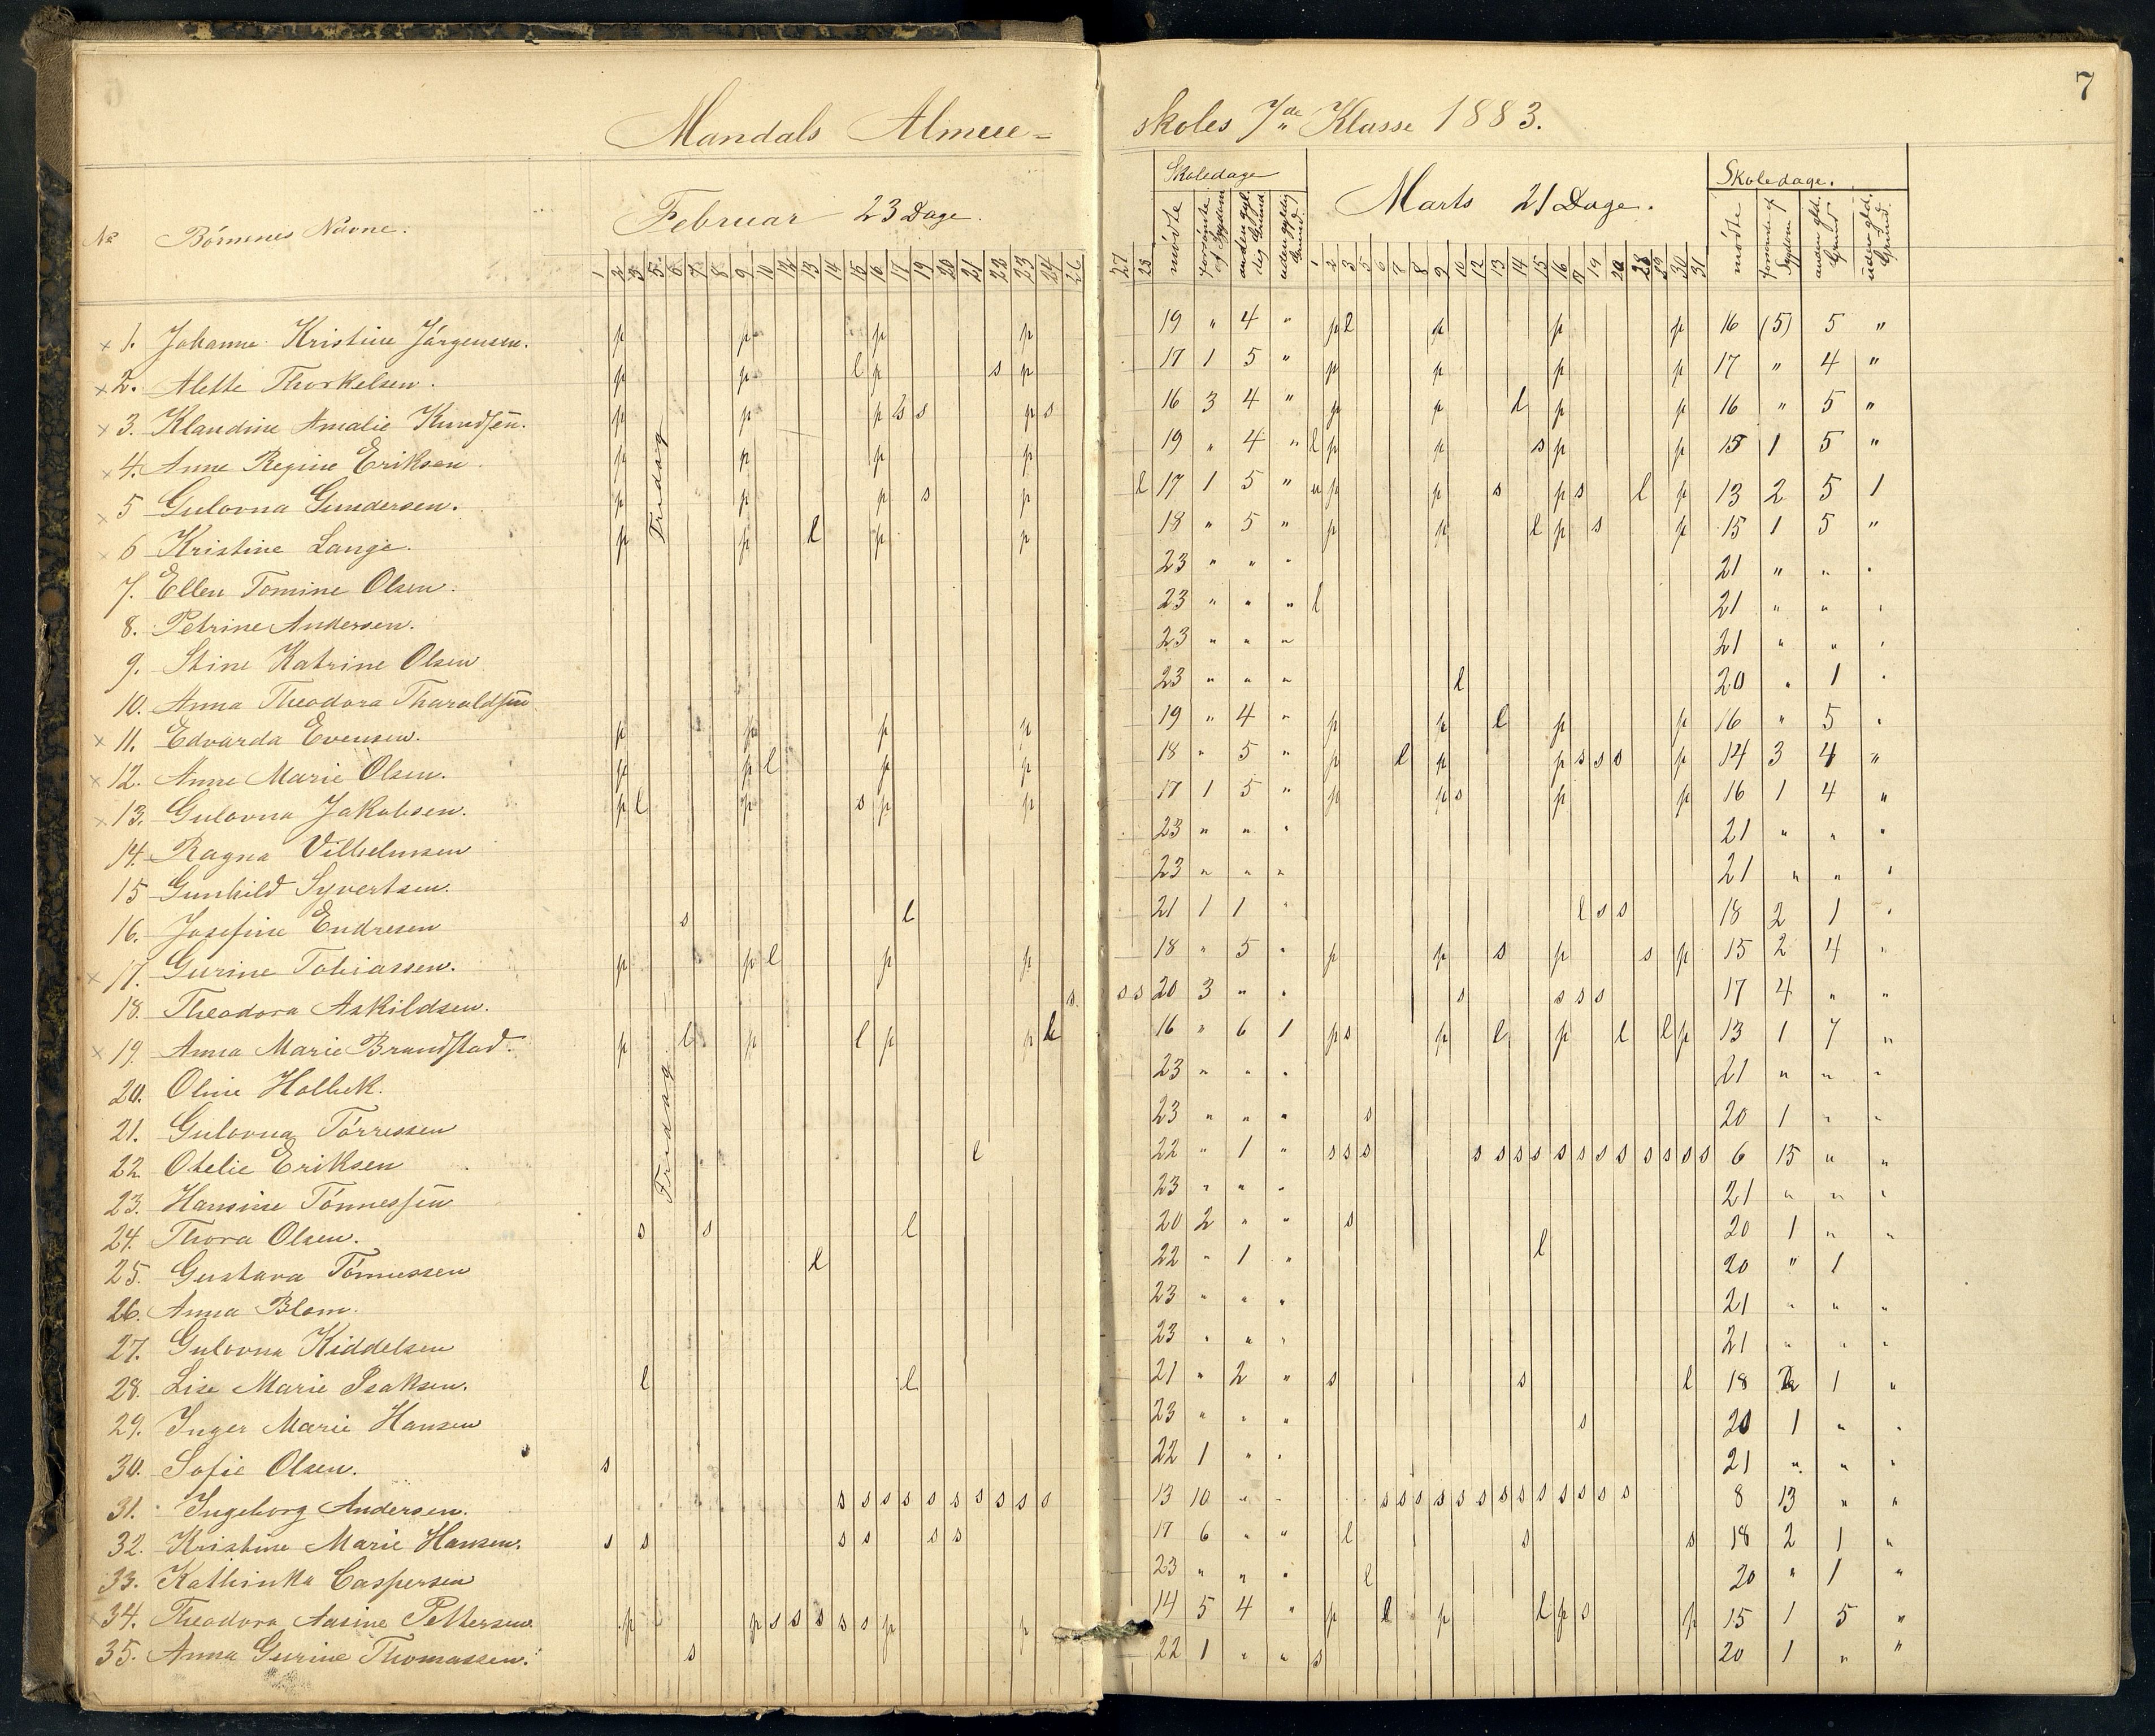 7
Mandals Almue= skoles 7de Klasse 1883.
No Börnenes Navne. Februar 23 Dage. Skoledage Marts 21 Dage. Skoledage.
mödte forsömte af Sygdom anden gyldig Grund uden gyldig Grund mödte forsömte af Sygdom anden gld. Grund uden gld. Grund.
1 2 3 5 6 7 8 9 10 12 13 14 15 16 17 19 20 21 22 23 24 26 27 28 1 2 3 5 6 7 8 9 10 12 13 14 15 16 19 30 31
Fredag
Fredag
× 1. Johanne Kristine Jörgensen. p p p p 19 " 4 " p l p p p 16 (5) 5 "
× 2. Alette Thorkelsen. p p l p s p 17 1 5 " p p p p 17 " 4 "
× 3. Klaudine Amalie Knudsen. p p p s s p s 16 3 4 " p p l p p 16 " 5 "
× 4. Anne Regine Eriksen p p p p 19 " 4 " l p p s p p 15 1 5 "
× 5 Gulovna Gundersen. p p p s p l 17 1 5 " u p p s p s l p 13 2 5 1
× 6 Kristine Lange. p p l p p 18 " 5 " p p l p s p 15 1 5 "
7. Ellen Tomine Olsen. 23 " " " 21 " " "
8. Petrine Andersen. 23 " " " l 21 " " "
9. Stine Katrine Olsen 23 " " " 21 " " "
10. Anna Theodora Tharaldsen 23 " " " l 20 " 1 "
× 11. Edvarda Evensen. p p p p 19 " 4 " p p l p p 16 " 5 "
× 12. Anne Marie Olsen. p p l p p 18 " 5 " p l p p s s s p 14 3 4 "
× 13. Gulovna Jakobsen. p l p s p p 17 1 5 " p p s p p 16 1 4 "
14. Ragna Vilhelmsen 23 " " " 21 " " "
15 Gunhild Syvertsen. 23 " " " 21 " " "
16. Josefine Endresen s l 21 1 1 " l s s 18 2 1 "
× 17. Gurine Tobiassen. p p l p p 18 " 5 " p p s p s p 15 2 4 "
18. Theodora Askildsen. s s s 20 3 " " s s s s 17 4 " "
× 19. Anna Marie Brandstad. p l p l p p l 16 " 6 1 p s p l p l l p 13 1 7 "
20. Oline Holbek. 23 " " " 21 " " "
21. Gulovna Törressen 23 " " " s 20 1 " "
22 Otelie Eriksen l 22 " 1 " s s s s s s s s s s s s s s s 6 15 " "
23. Hansine Tönnessen 23 " " " 21 " " "
24. Thora Olsen. s s l 20 2 " " s 20 1 " "
25. Gustava Tönnessen l 22 " 1 " l 20 " 1
26. Anna Blom. 23 " " " 21 " " "
27. Gulovna Kiddelsen 23 " " " 21 " " "
28. Lise Marie Isaksen. l l 21 " 2 " s s l 18 2 1 "
29. Inger Marie Hansen 23 " " " s 20 1 " "
30. Sofie Olsen. s 22 1 " " 21 " " "
31. Ingeborg Andersen. s s s s s s s s s s 13 10 " " s s s s s s s s s s s s s 8 13 " "
32. Kristine Marie Hansen. s s s s s s 17 6 " " l s s 18 2 1 "
33. Kathinka Caspersen 23 " " " l 20 " 1 "
× 34. Theodora Aasine Pettersen. p p s s s s s p p 14 5 4 " p l p l p s p 15 1 5 "
35. Anna Gurine Thomassen. s 22 1 " " s 20 1 " "